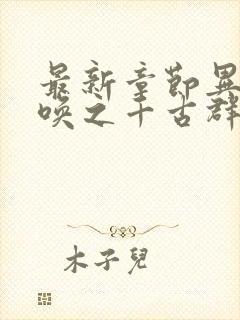 最新章節異
喚之千古群
木子兒